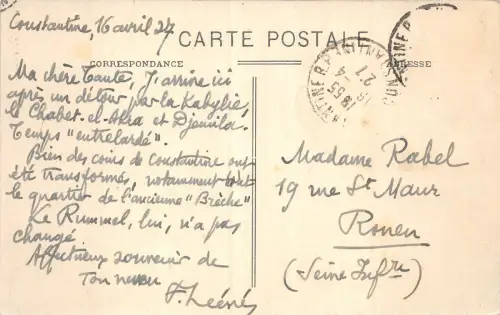 Constantine, 16 avril 27
CARTE POSTALE
CORRESPONDANCE
ADRESSE
Ma chère Tante, J'arrive ici
après un détour par la Kabylie,
le Chabet-el-Akra et Djemila.
Temps "entrelardé".
Bien des coins de Constantine ont
été transformés, notamment tout
le quartier de l'ancienne "Brèche"
Le Rummel, lui, n'a pas
changé.
Affectueux souvenir de
Ton neveu
Madame Rabel
19 rue St Maur
Rouen
(Seine Infre)
CONSTANTINE R.P.
18 55
16 4
27